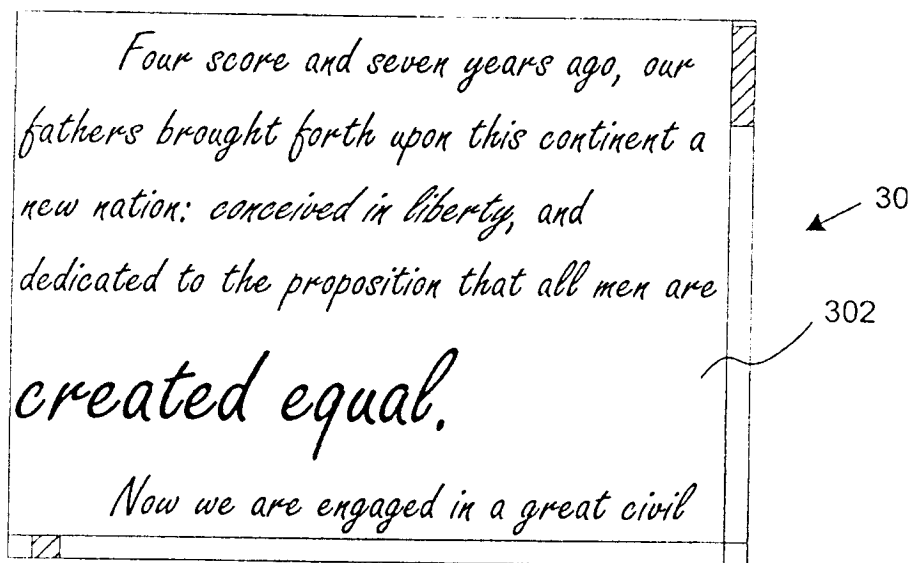 Four score and seven years ago, our
fathers brought forth upon this continent a
new nation: conceived in liberty, and
30
dedicated to the proposition that all men are
302
created equal.
Now we are engaged in a great civil